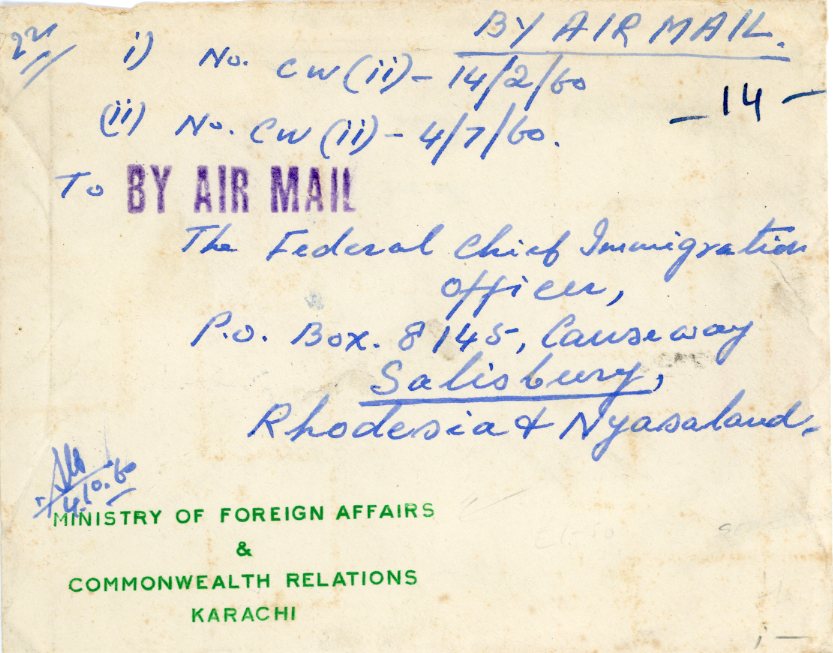 BY AIR MAIL.
i) No. CW(ii)-14/2/60
-14-
(ii) No. CW(ii)-4/7/60.
To BY AIR MAIL
The Federal Chief Immigration
Officer,
P.O. Box. 8145, Causeway
Salisbury,
Rhodesia & Nyasaland.
4.10.60
MINISTRY OF FOREIGN AFFAIRS
&
COMMONWEALTH RELATIONS
KARACHI